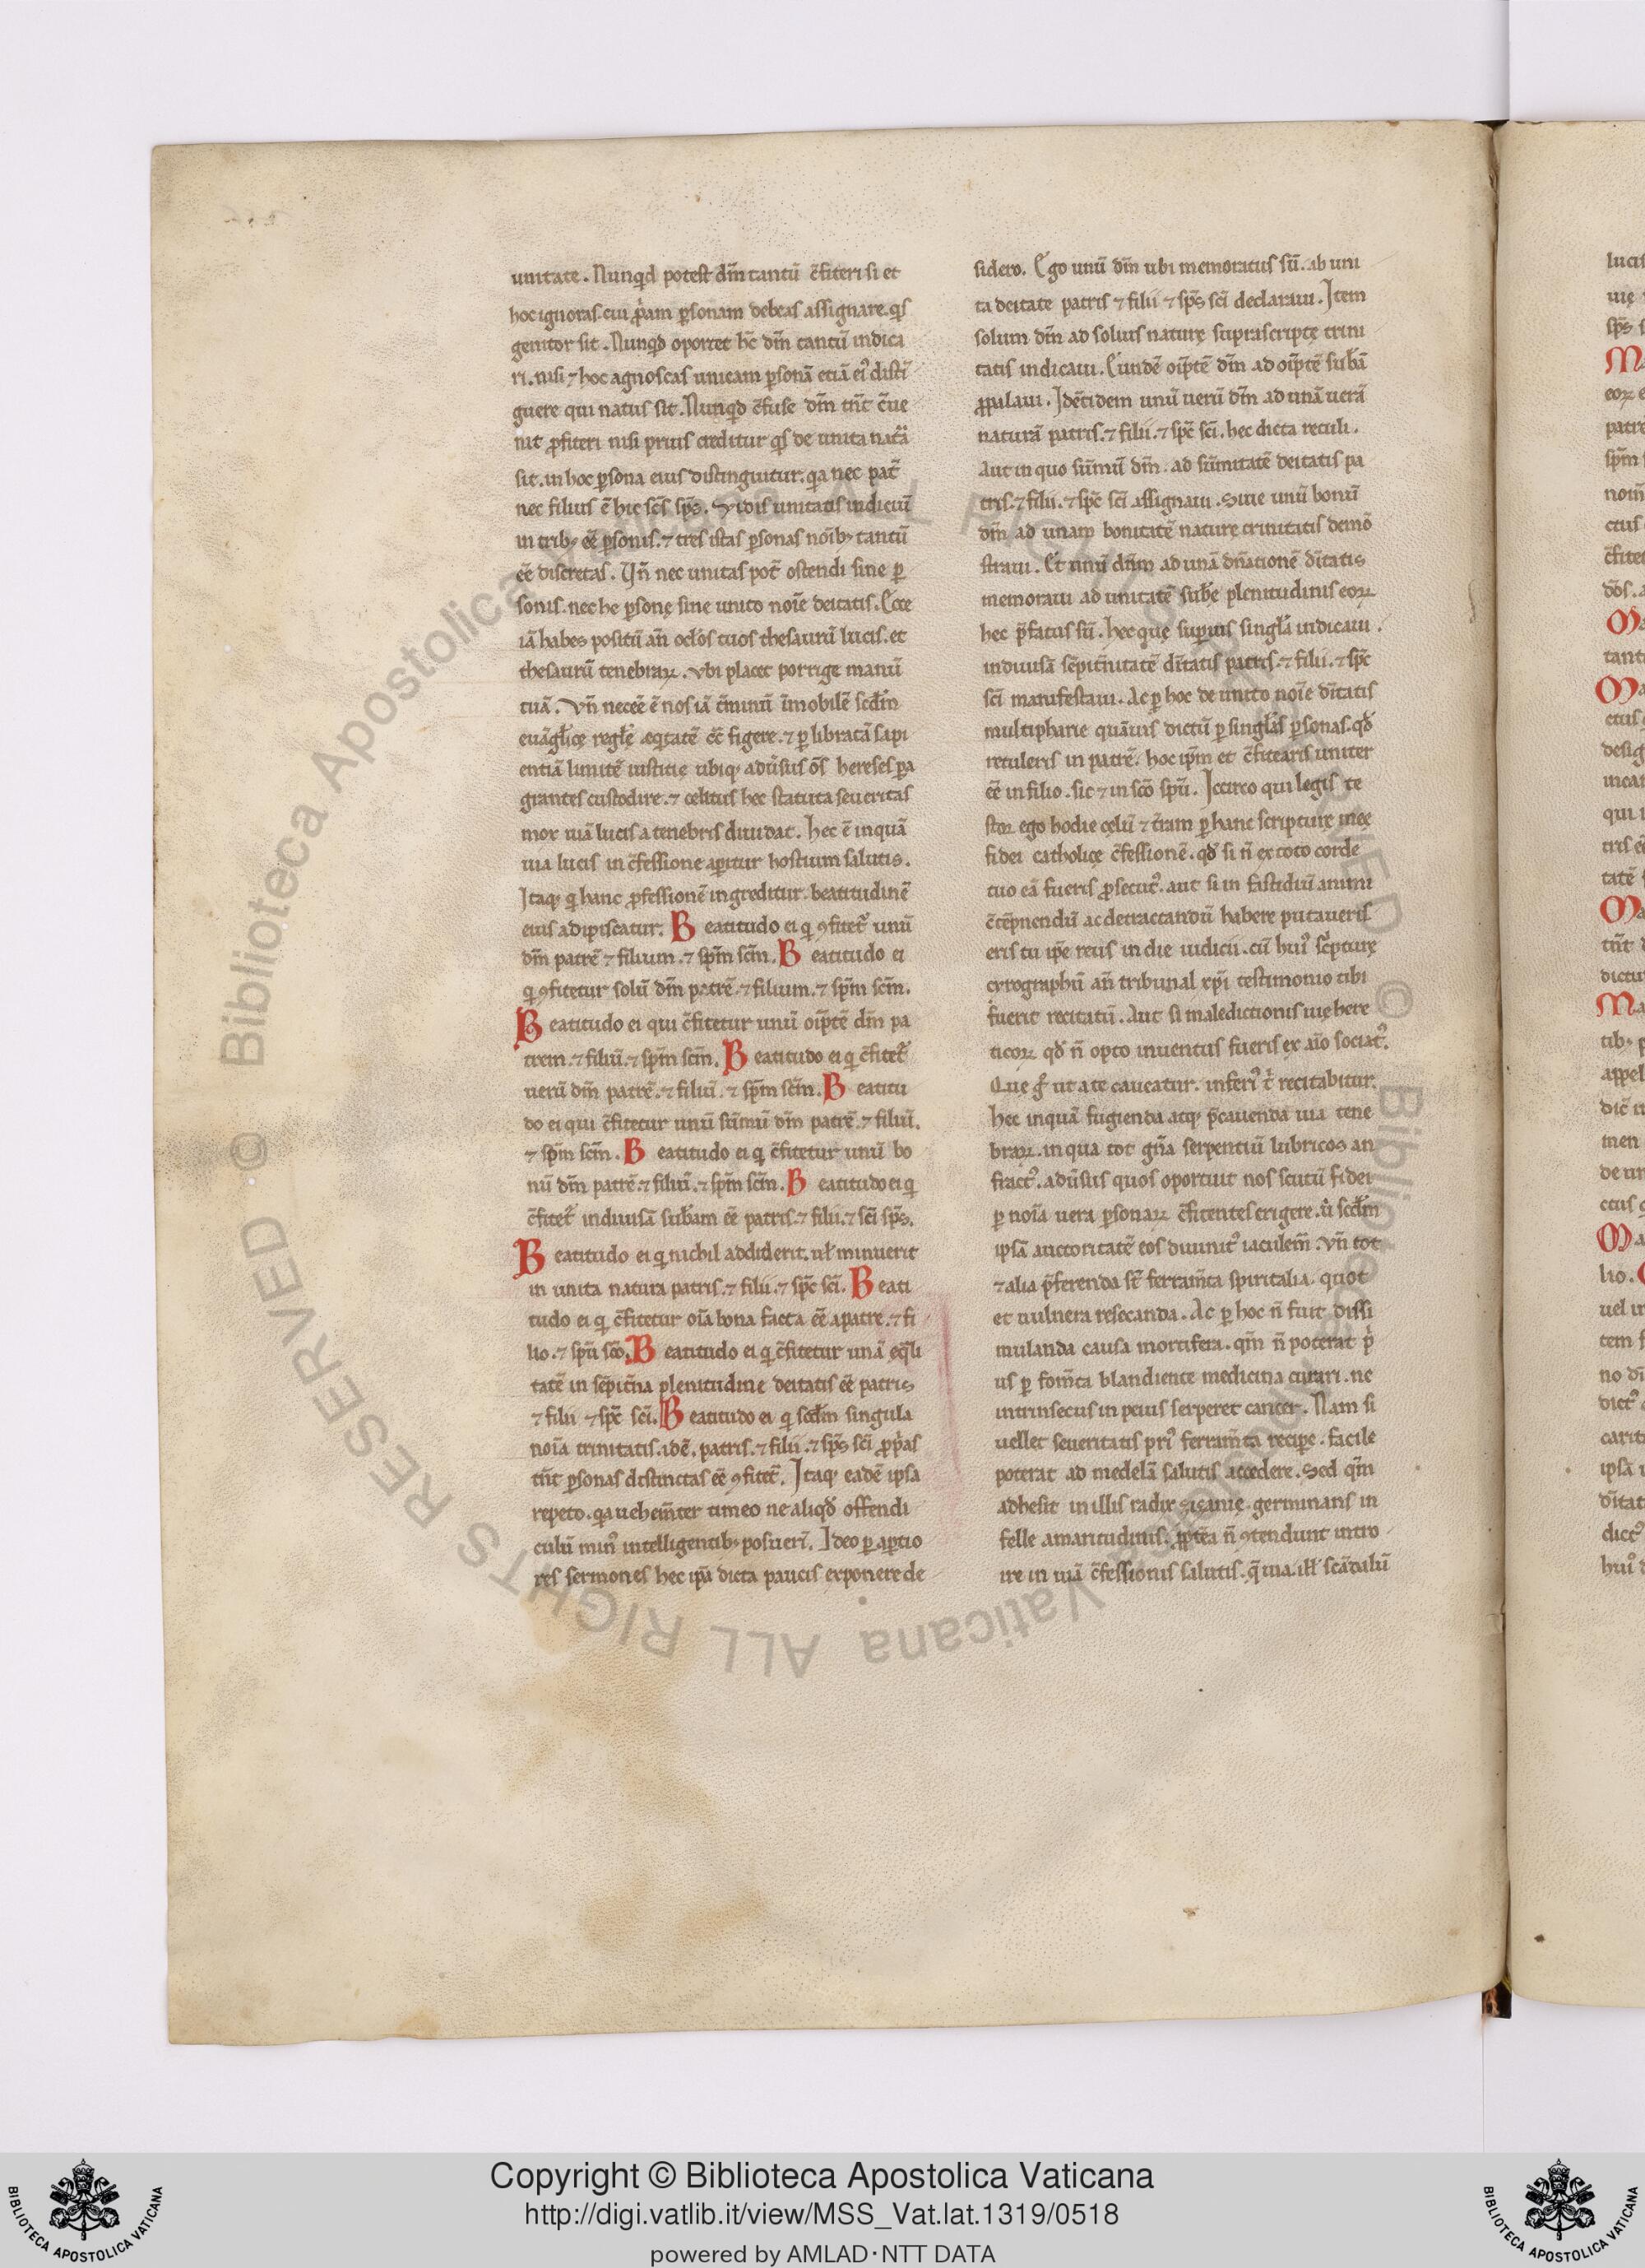 unitate. Nunqd potest dm̄ tantū c̄fiteri si et
hoc ignoras. cui ꝓam ꝑsonam debeas assignare. qs
genitor sit. Nunqd oportet hc̄ dm̄ tantū indica
ri. nisi ⁊ hoc agnoscas unicam ꝑsonā etiā eiꝰ disti
guere qui natus sit. Nunqd c̄fuse dm̄ tn̄t c̄ue
nit ꝓfiteri nisi prius creditur qs de unita nat̄a
sit. in hoc ꝑsona eius distinguitur. qa nec pat̄
nec filius ē hic sc̄s sp̄s. Vidis unitatis indiciū
in tribꝫ eē ꝑsonis. ⁊ tres istas ꝑsonas noībꝫ tantū
eē discretas. Un̄ nec unitas pot̄ ostendi sine ꝑ
sonis. nec he ꝑsonę sine unito noīe deitatis. Ecce
iā habes positū an̄ oclos tuos thesaurū lucis. et
thesaurū tenebraꝝ. vbi placet porrige manū
tuā. Vn̄ neceē ē nos iā t̄minū īmobilē scd̄m
euāglicę reglę eqtatē c̄c figere. ⁊ ꝑ libratā sapi
entiā limitē iustitię ubiqꝫ adūsus ōs hereses ꝑa
grantes custodire. ⁊ celitus hec statuta seueritas
mox uiā lucis a tenebris diuidat. Hec ē inquā
uia lucis in c̄fessione aꝑitur hostium salutis.
Itaqꝫ q hanc ꝓfessionē ingreditur. beatitudinē
eius adipiscatur. Beatitudo ei q ꝯfitet̄ unū
dm̄ patrē ⁊ filium. ⁊ spm̄ scm̄. Beatitudo ei
q ꝯfitetur solū dm̄ patrē. ⁊ filium. ⁊ spm̄ scm̄.
Beatitudo ei qui c̄fitetur unū oīptē dm̄ pa
trem. ⁊ filiū. ⁊ spm̄ scm̄. Beatitudo ei q c̄fitet̄
uerū dm̄ patrē. ⁊ filiū. ⁊ spm̄ scm̄. Beatitu
do ei qui c̄fitetur unū sūmū dm̄ patrē. ⁊ filiū.
⁊ spm̄ scm̄. Beatitudo ei q c̄fitetur unū bo
nū dm̄ patrē. ⁊ filiū. ⁊ spm̄ scm̄. Beatitudo ei q
c̄fitet̄ indiuisā sub̄am eē patris. ⁊ filii. ⁊ sc̄i sp̄s.
Beatitudo ei q nichil addiderit. ul̄ minuerit
in unita natura patris. ⁊ filii. ⁊ sp̄c sc̄i. Beati
tudo ei q c̄fitetur oīa bona facta eē a patre. ⁊ fi
lio. ⁊ spū sc̄o. Beatitudo ei q c̄fitetur unā eq̄li
tatē in sēpit̄na plenitudine deitatis eē patris
⁊ filii ⁊ sp̄c sc̄i. Beatitudo ei q scd̄m singula
noīa trinitatis. idē. patris. ⁊ filii. ⁊ sp̄s sc̄i ꝓpas
tn̄t ꝑsonas distinctas eē ꝯfitet̄. Itaqꝫ eadē ipsa
repeto. qa uehem̄ter timeo ne aliqd̄ offendi
culū minꝰ intelligentibꝫ posueri. Ideo ꝑ aꝑtio
res sermones hec ipā dicta paucis exponere de
sidero. Ego unū dm̄ ubi memoratus sū. ab uni
ta deitate patris ⁊ filii ⁊ sp̄s sc̄i declaraui. Item
solum dm̄ ad solius naturę suprascriptę trini
tatis indicaui. Eundē oīptē dm̄ ad oīptē sub̄ā
ꝓpalaui. Idētidem unū uerū dm̄ ad unā uerā
naturā patris. ⁊ filii. ⁊ sp̄c sc̄i. hec dicta retuli.
Aut in quo sūmū dm̄. ad sūmitatē deitatis pa
tris. ⁊ filii. ⁊ sp̄c sc̄i assignaui. Siue unū bonū
dm̄ ad unam bonitatē naturę trinitatis demō
straui. Et unū dn̄m ad unā dn̄ationē dītatis
memoraui ad unitatē sub̄e plenitudinis eoꝝ
hec p̄fatus sū. hec quę suꝑius singl̄a indicaui.
indiuisā sēpit̄nitatē dītatis patris. ⁊ filii. ⁊ sp̄c
sc̄i manifestaui. Ac ꝑ hoc de unito noīe dītatis
multipharie quāuis dictū ꝑ singl̄as ꝑsonas. qd̄
retuleris in patrē. hoc ipm̄ et c̄fitearis uniter
eē in filio. sic ⁊ in sc̄o spū. Iccirco qui legis te
stor ego hodie celū ⁊ t̄ram ꝑ hanc scripturę meę
fidei catholicę c̄fessionē. qd̄ si n̄ ex toto corde
tuo eā fueris ꝓsecutꝰ. aut si in fastidiū animi
c̄tēpnendū ac detractandū habere putaueris
eris tu ipe reus in die iudicii. cū huiꝰ scpturę
cyrographū an̄ tribunal xp̄i testimonio tibi
fuerit recitatū. Aut si maledictionis uię here
ticoꝝ qd̄ n̄ opto inuentus fueris ex aīo sociatꝰ.
Quę g° ut a te caueatur. inferiꝰ t̄ recitabitur.
hec inquā fugienda atqꝫ p̄cauenda uia tene
braꝝ. in qua tot gn̄a serpentiū lubricos an
fractꝰ. adūsus quos oportuit nos scutū fidei
ꝑ noīa uera ꝑsonaꝝ c̄fitentes erigere. ū scd̄m
ipsā auctoritatē eos diuinitꝰ iaculem̄. Vn̄ tot
⁊ alia p̄ferenda st̄ ferram̄ta spiritalia. quot
et uulnera resecanda. Ac ꝑ hoc n̄ fuit dissi
mulanda causa mortifera. qm̄ n̄ poterat p̄
us ꝑ fom̄ta blandiente medicina curari. ne
intrinsecus in peius serperet cancer. Nam si
uellet seueritatis priꝰ ferram̄ta recipe. facile
poterat ad medelā salutis accedere. Sed qm̄
adhesit in illis radix sisanię. germinans in
felle amaritudinis. ꝓptea n̄ ꝯtendunt intro
ire in uiā c̄fessionis salutis. q̄ uia. ill̄ scādalū
Copyright © Biblioteca Apostolica Vaticana
http://digi.vatlib.it/view/MSS_Vat.lat.1319/0518
powered by AMLAD·NTT DATA
BIBLIOTECA APOSTOLICA VATICANA
BIBLIOTECA APOSTOLICA VATICANA
© Biblioteca Apostolica Vaticana ALL RIGHTS RESERVED